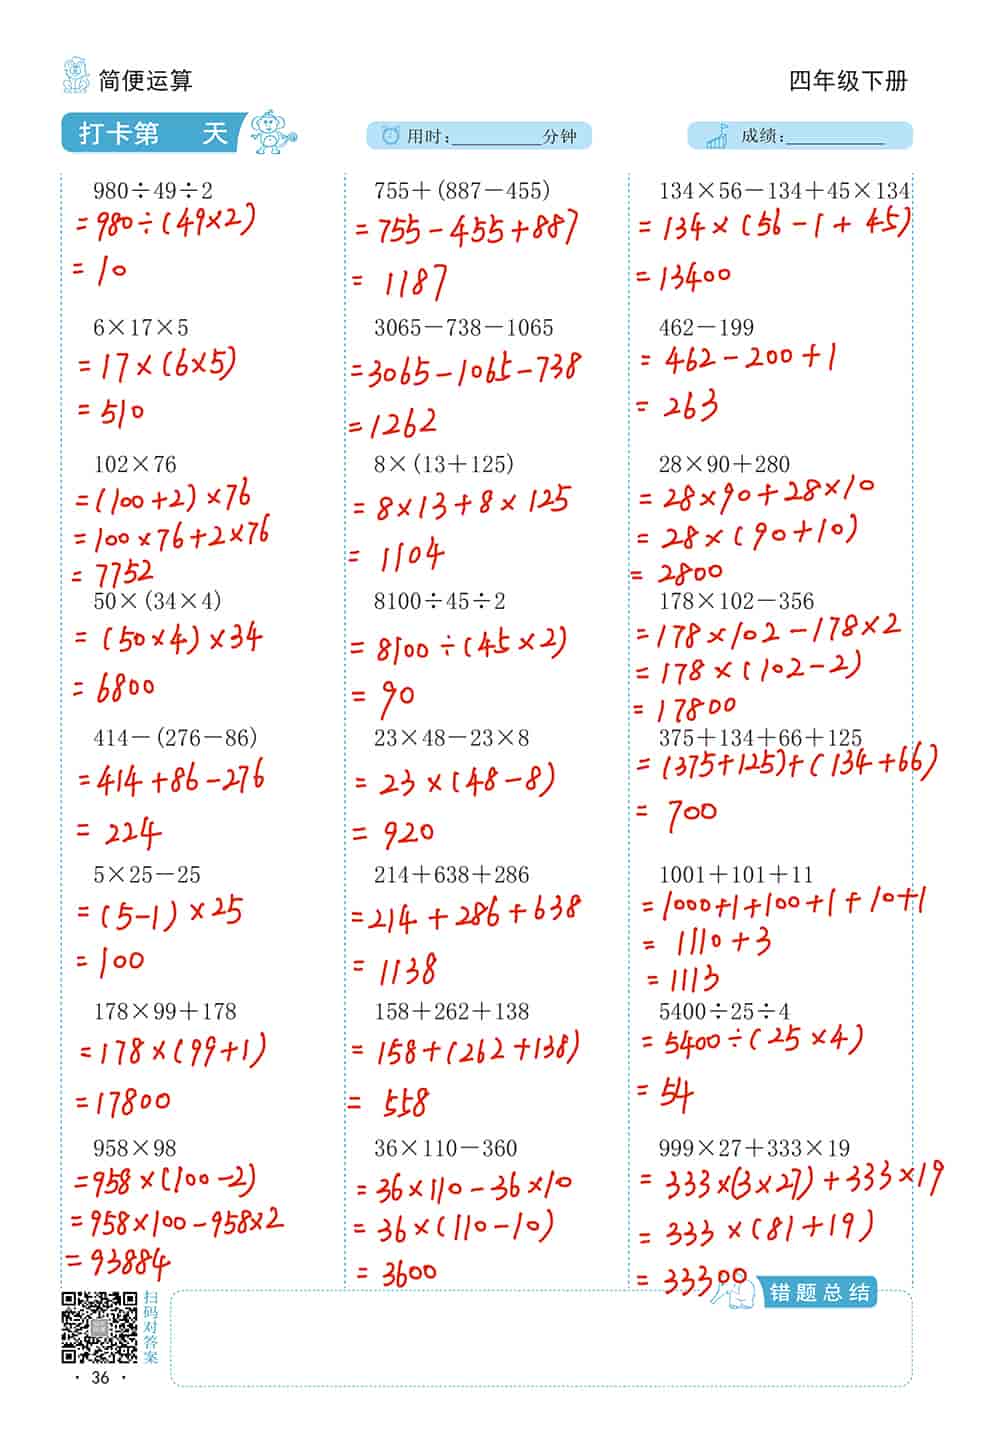 简便运算
四年级下册
打卡第 天
用时:__________分钟
成绩:__________
980÷49÷2
=980÷(49×2)
=10
6×17×5
=17×(6×5)
=510
102×76
=(100+2)×76
=100×76+2×76
=7752
50×(34×4)
=(50×4)×34
=6800
414-(276-86)
=414+86-276
=224
5×25-25
=(5-1)×25
=100
178×99+178
=178×(99+1)
=17800
958×98
=958×(100-2)
=958×100-958×2
=93884
755+(887-455)
=755-455+887
=1187
3065-738-1065
=3065-1065-738
=1262
8×(13+125)
=8×13+8×125
=1104
8100÷45÷2
=8100÷(45×2)
=90
23×48-23×8
=23×(48-8)
=920
214+638+286
=214+286+638
=1138
158+262+138
=158+(262+138)
=558
36×110-360
=36×110-36×10
=36×(110-10)
=3600
134×56-134+45×134
=134×(56-1+45)
=13400
462-199
=462-200+1
=263
28×90+280
=28×90+28×10
=28×(90+10)
=2800
178×102-356
=178×102-178×2
=178×(102-2)
=17800
375+134+66+125
=(375+125)+(134+66)
=700
1001+101+11
=1000+1+100+1+10+1
=1110+3
=1113
5400÷25÷4
=5400÷(25×4)
=54
999×27+333×19
=333×(3×27)+333×19
=333×(81+19)
=33300
错题总结
扫码对答案
· 36 ·